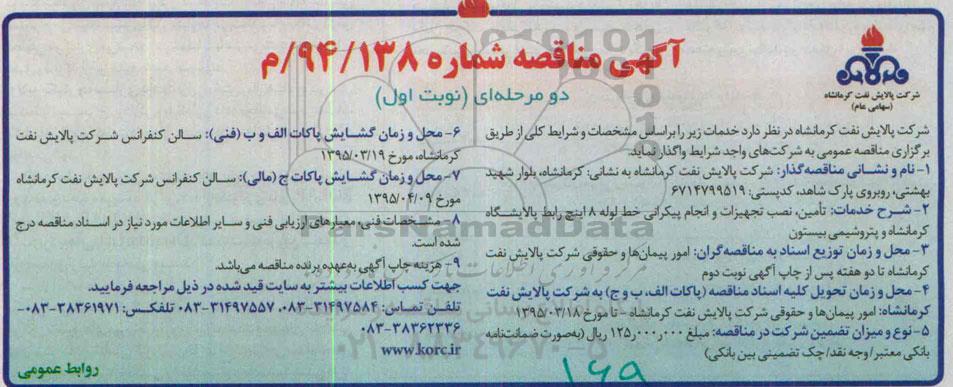 آگهی مناقصه شماره ۹۴/۱۳۸/م
دو مرحله‌ای (نوبت اول)
شرکت پالایش نفت کرمانشاه
(سهامی عام)
شرکت پالایش نفت کرمانشاه در نظر دارد خدمات زیر را براساس مشخصات و شرایط کلی از طریق
برگزاری مناقصه عمومی به شرکت‌های واجد شرایط واگذار نماید.
۱- نام و نشانی مناقصه‌گذار: شرکت پالایش نفت کرمانشاه به نشانی: کرمانشاه، بلوار شهید
بهشتی، روبروی پارک شاهد، کدپستی: ۶۷۱۴۷۹۹۵۱۹
۲- شرح خدمات: تأمین، نصب تجهیزات و انجام پیکرانی خط لوله ۸ اینچ رابط پالایشگاه
کرمانشاه و پتروشیمی بیستون
۳- محل و زمان توزیع اسناد به مناقصه‌گران: امور پیمان‌ها و حقوقی شرکت پالایش نفت
کرمانشاه تا دو هفته پس از چاپ آگهی نوبت دوم
۴- محل و زمان تحویل کلیه اسناد مناقصه (پاکات الف، ب و ج) به شرکت پالایش نفت
کرمانشاه: امور پیمان‌ها و حقوقی شرکت پالایش نفت کرمانشاه - تا مورخ ۱۳۹۵/۰۳/۱۸
۵- نوع و میزان تضمین شرکت در مناقصه: مبلغ ۱۲۵٫۰۰۰٫۰۰۰ ریال (به‌صورت ضمانتنامه
بانکی معتبر/وجه نقد/چک تضمینی بین بانکی)
۶- محل و زمان گشایش پاکات الف و ب (فنی): سالن کنفرانس شرکت پالایش نفت
کرمانشاه، مورخ ۱۳۹۵/۰۳/۱۹
۷- محل و زمان گشایش پاکات ج (مالی): سالن کنفرانس شرکت پالایش نفت کرمانشاه
مورخ ۱۳۹۵/۰۴/۰۹
۸- مشخصات فنی، معیارهای ارزیابی فنی و سایر اطلاعات مورد نیاز در اسناد مناقصه درج
شده است.
۹- هزینه چاپ آگهی به‌عهده برنده مناقصه می‌باشد.
جهت کسب اطلاعات بیشتر به سایت قید شده در ذیل مراجعه فرمایید.
تلفن تماس: ۳۱۴۹۷۵۸۴-۰۸۳، ۳۱۴۹۷۵۵۷-۰۸۳ تلفکس: ۳۸۳۶۱۹۷۱-۰۸۳-
۰۸۳-۳۸۳۶۲۳۳۶
www.korc.ir
روابط عمومی
ParsNamadData
۱۶۹